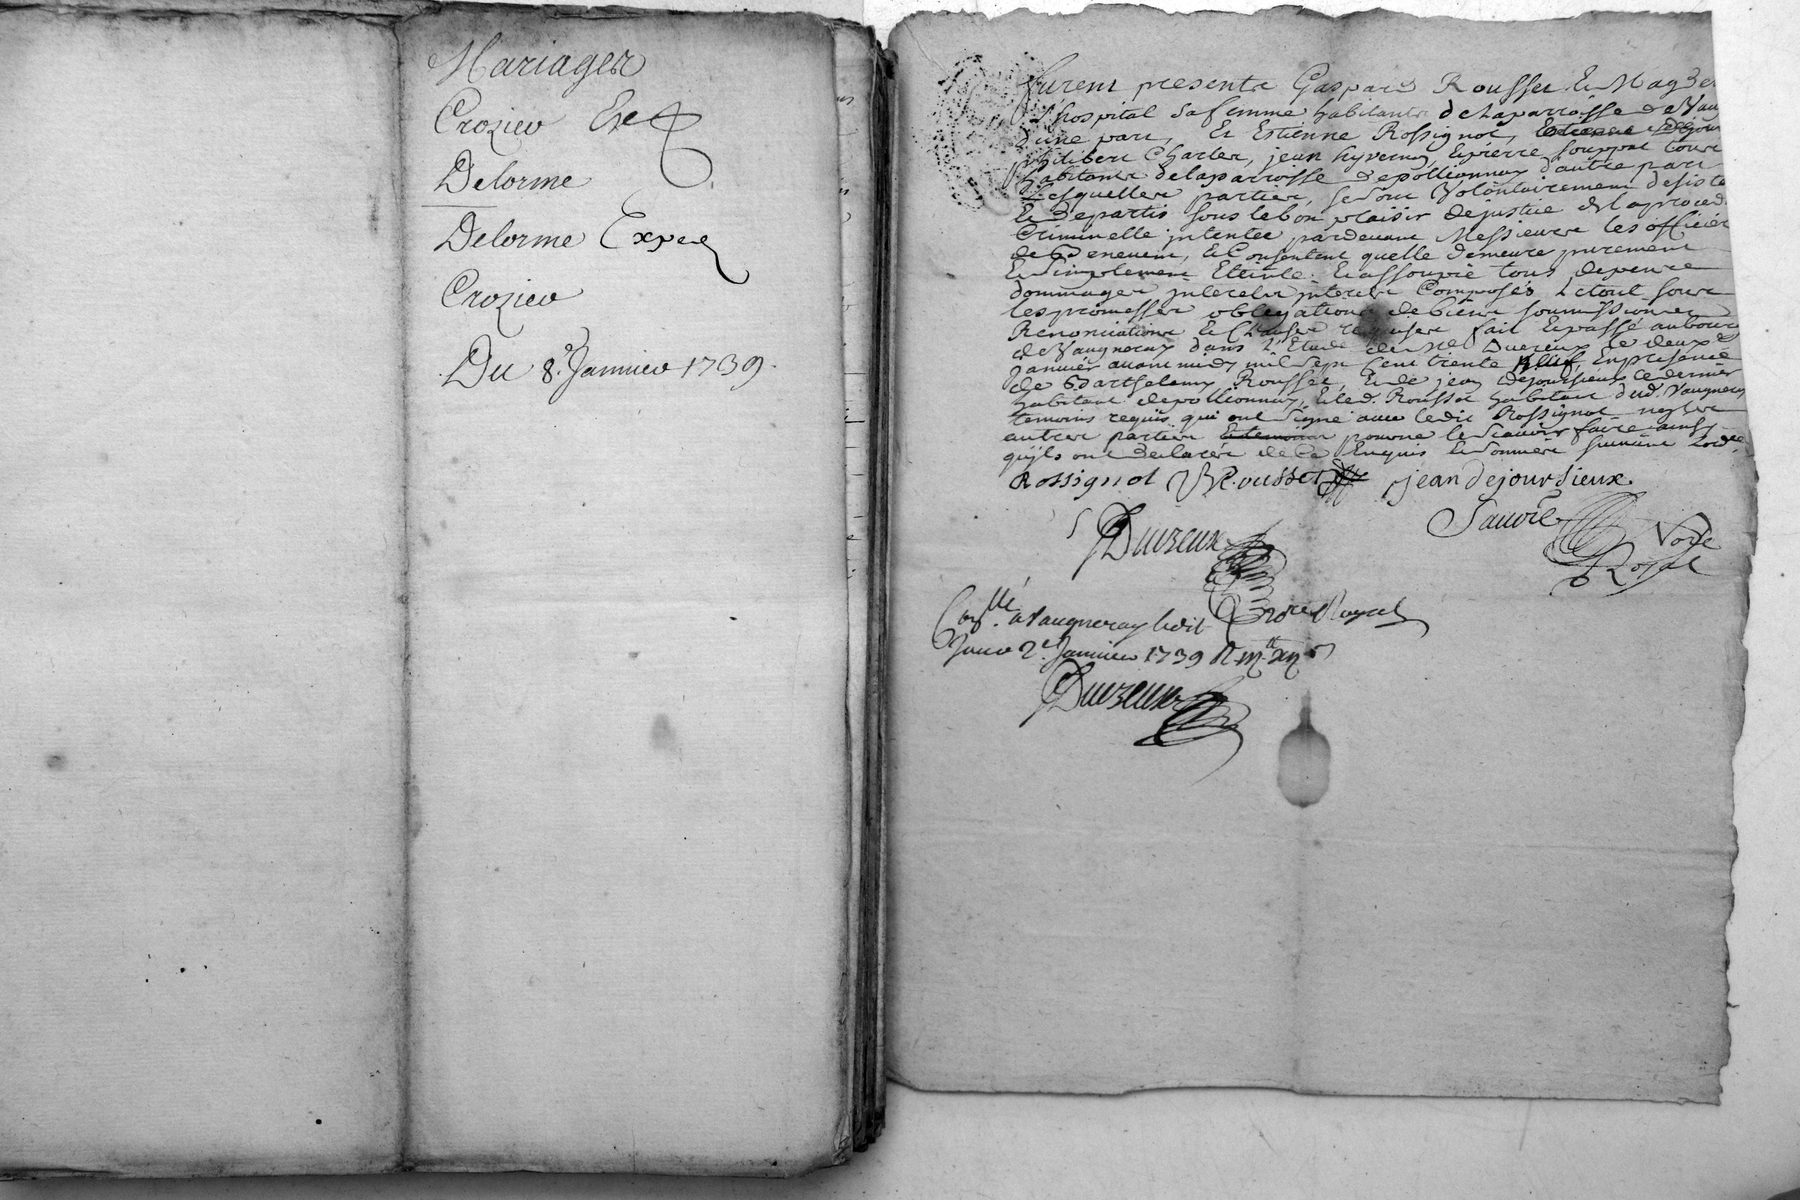 Mariages
Crozier Exp.
Delorme
Delorme Exped
Crozier
Du 8e Janvier 1739.
furent presents Gaspard Rousset Et Magde
L'hospital sa femme habitants de la parroisse de Vau
d'une part, Et Estienne Rossignol,
philibert Charles, jean hyvernay, Et pierre souppat tous
habitants de la parroisse de pollionnay d'autre part
Lesquelles parties, se sont Volontairement desiste
Et departis sous le bon plaisir de justice de la proced
Criminelle jntentée pardevant Messieurs les officier
de Benevent, Et Consentent quelle demeure purement
Et simplement Eteinte Et assoupie tous depens
dommages jnterets jnterets Composés Et tout sous
les promesses obligations de biens soumissions
Renonciations Et Clauses requises fait Et passé au bourg
de Vaugneray dans L'Etude du Ne Duvzeux le deux
janvier avant midy mil sept Cent trente Neuf, En presance
de Barthelemy Rousset, Et de jean dejoursieux ce dernier
habitant de pollionnay, Et led. Rousset habitant dud. Vaugneray
temoins requis qui ont signé avec ledit Rossignol non les
autres parties pour ne le scavoir faire ainsy
qu'jls ont declarés de ce Enquis Et sommés suivant Lordce
Rossignol Rousset jean dejoursieux.
Duvzeux
Sauvie Nore
Royal
Conllé a Vaugneray ledit Nore Royal
Jour 2e Janvier 1739
Duvzeux